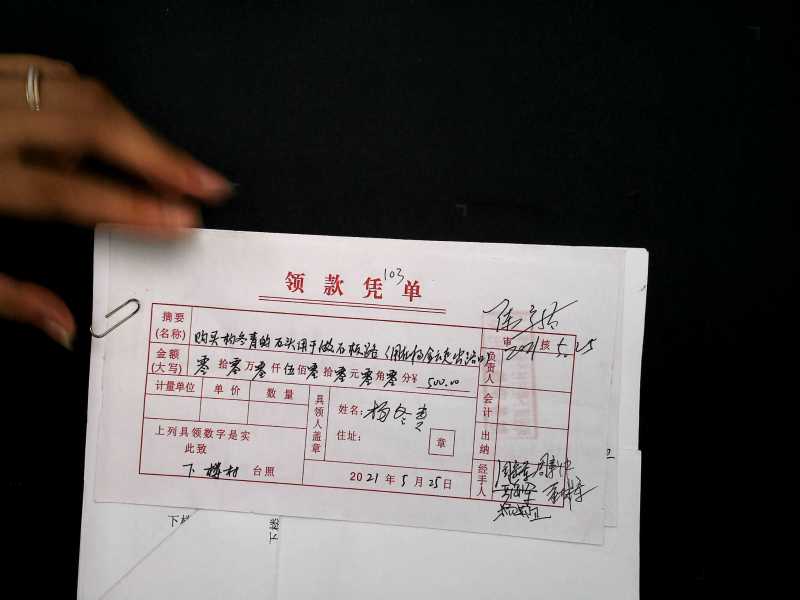 领款凭单
103
摘要
(名称)
购买杨冬青的石头用于做石板路
审核
2021 5.25
金额
(大写)
零拾零万零仟伍佰零拾零元零角零分¥ 500.00
负责人
计量单位 单价 数量
具领人盖章
姓名: 杨冬青
住址: 章
会计
上列具领数字是实
此致
出纳
下楼村 台照
2021年5月25日
经手人
下楼
下楼